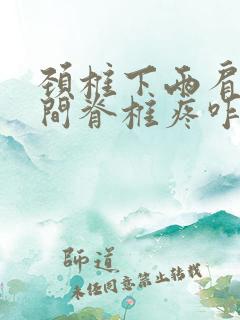 頚柱下两肩
間脊柱疼咋
師道
未经同意禁止转载